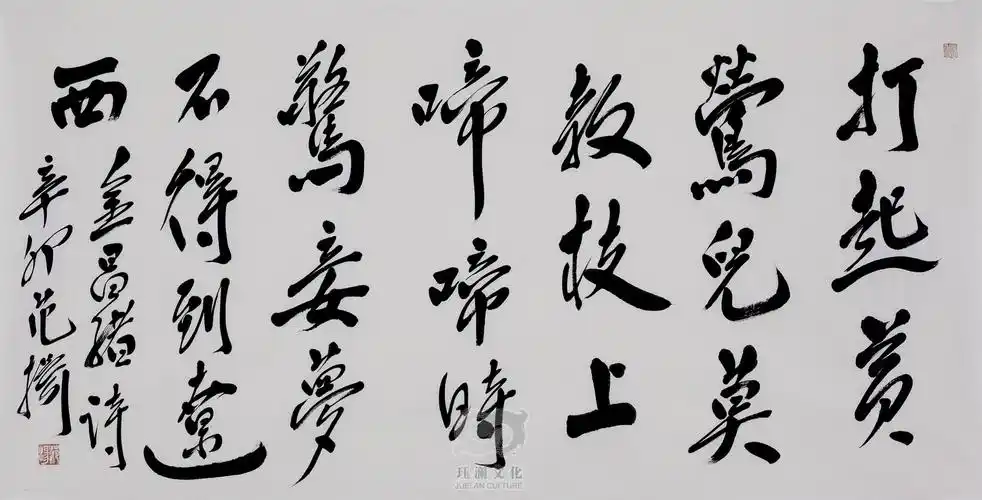 打起黄
莺兒莫
教枝上
啼啼時
驚妾夢
不得到遼
西
金昌緒詩
辛卯范撝
珏瀾文化
JUELAN CULTURE